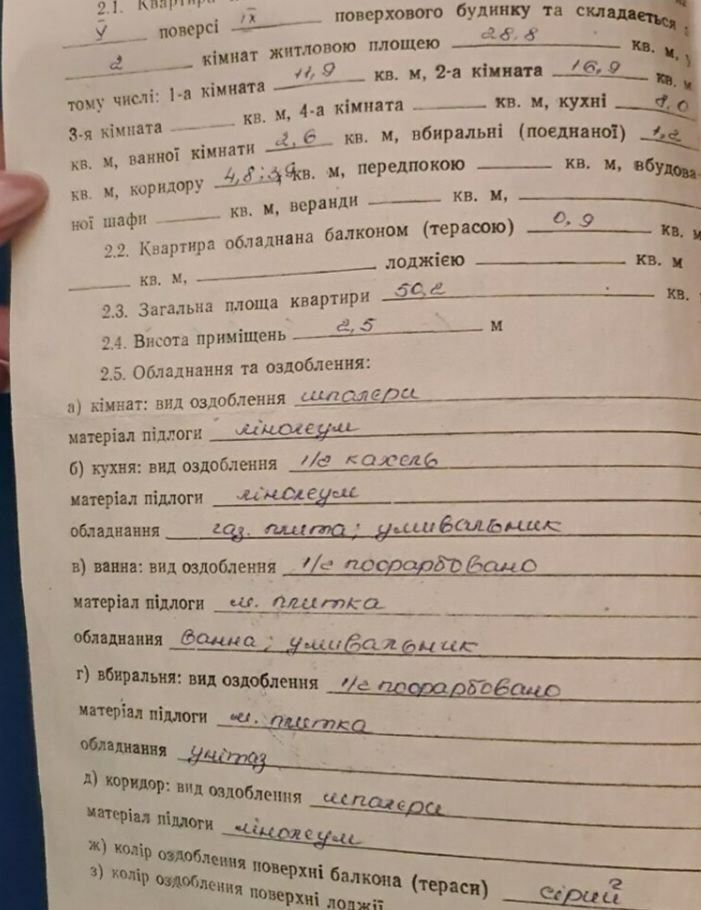 2.1. Квартира
V поверсі IX поверхового будинку та складається з
2 кімнат житловою площею 28.8 кв. м, у
тому числі: 1-а кімната 11,9 кв. м, 2-а кімната 16,9 кв. м
3-я кімната кв. м, 4-а кімната кв. м, кухні 8,0
кв. м, ванної кімнати 2,6 кв. м, вбиральні (поєднаної) 1,2
кв. м, коридору 4,8; 3,9 кв. м, передпокою кв. м, вбудова-
ної шафи кв. м, веранди кв. м,
2.2. Квартира обладнана балконом (терасою) 0,9 кв. м
кв. м, лоджією кв. м
2.3. Загальна площа квартири 50,2 кв.
2.4. Висота приміщень 2,5 м
2.5. Обладнання та оздоблення:
а) кімнат: вид оздоблення шпалери
матеріал підлоги лінолеум
б) кухня: вид оздоблення 1/2 кахель
матеріал підлоги лінолеум
обладнання газ. плита; умивальник
в) ванна: вид оздоблення 1/2 пофарбовано
матеріал підлоги м. плитка
обладнання ванна; умивальник
г) вбиральня: вид оздоблення 1/2 пофарбовано
матеріал підлоги м. плитка
обладнання унітаз
д) коридор: вид оздоблення шпалери
матеріал підлоги лінолеум
ж) колір оздоблення поверхні балкона (тераси) сірий
з) колір оздоблення поверхні лоджії